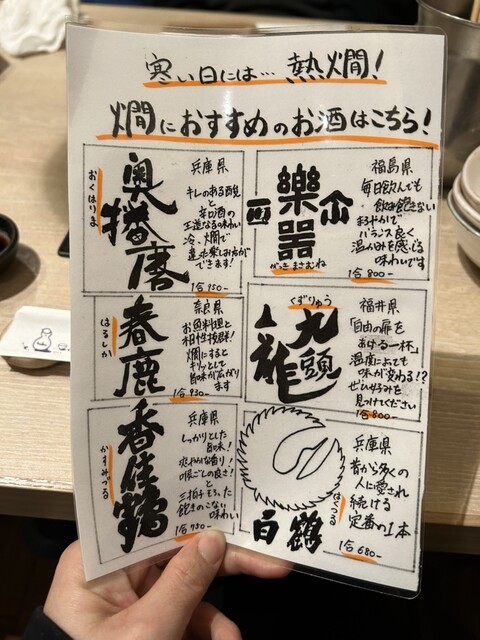 寒い日には… 熱燗!
燗におすすめのお酒はこちら!
おくはりま
奥播磨
兵庫県
キレのある酸と
辛口の
王道なる味わい
冷、燗で
違た楽しみ方が
できます!
1合 950-
樂器
がっきまさむね
福島県
毎日飲んでも
飲み飽きない
まろやかで
バランス良く
温かみを感じる
味わいです
1合 800-
はるしか
春鹿
奈良県
お魚料理と
相性抜群!
燗にすると
キリッとして
旨味が広がり
ます
1合 930-
くずりゅう
九頭龍
福井県
「自由の扉を
あける一杯」
温度によって
味が変わる!?
ぜひ好みを
見つけてください
1合 800-
かすみづる
香住鶴
兵庫県
しっかりとした
旨味!
爽やかな香り!
喉ごしの良さ!
と
三拍子そろった
飽きのこない
味わい
1合 750-
はくつる
白鶴
兵庫県
昔から多くの
人に愛され
続ける
定番の1本
1合 680-